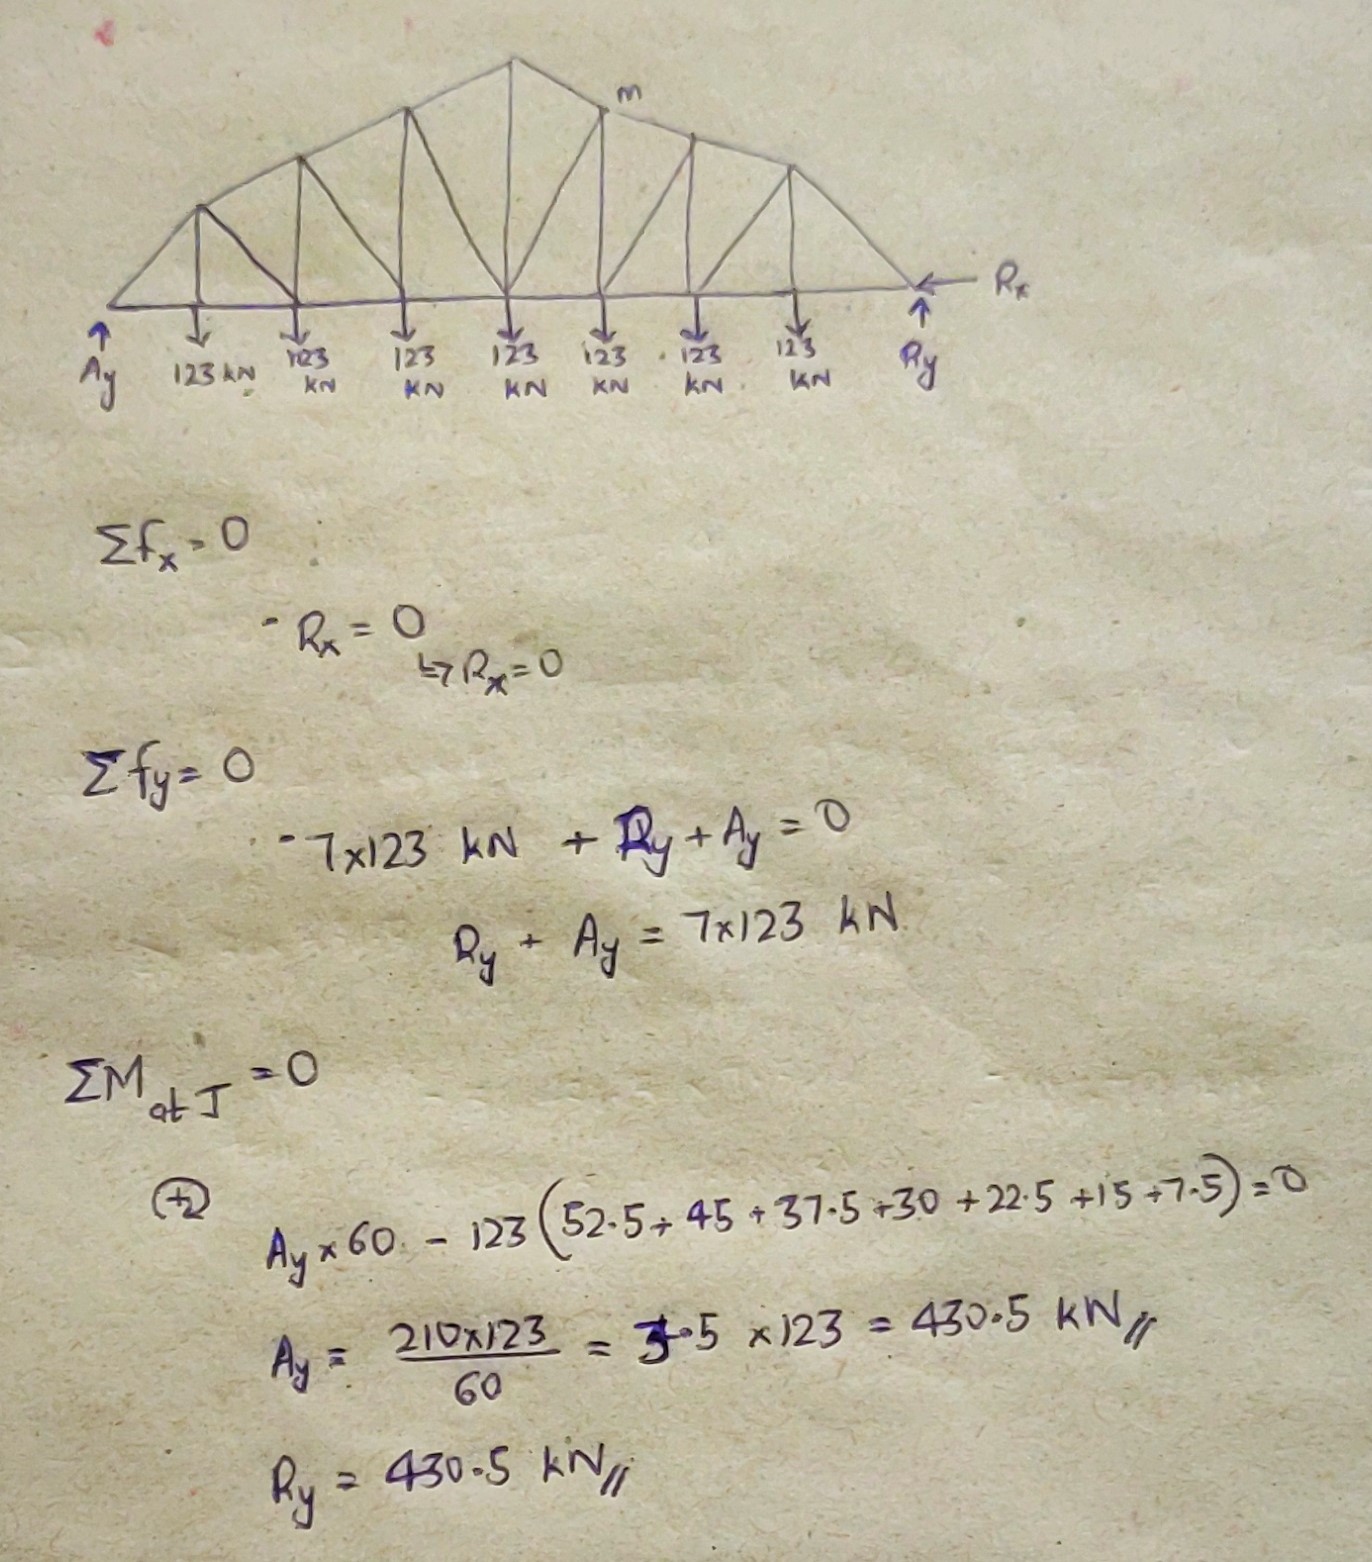 m
Rx
Ay
123 kN
123 kN
123 kN
123 kN
123 kN
123 kN
123 kN
Ry
Σfx = 0
- Rx = 0
↳ Rx = 0
Σfy = 0
- 7x123 kN + Ry + Ay = 0
Ry + Ay = 7x123 kN
ΣM at J = 0
+
Ay x 60 - 123 (52.5 + 45 + 37.5 + 30 + 22.5 + 15 + 7.5) = 0
Ay = 210x123 / 60 = 3.5 x 123 = 430.5 kN //
Ry = 430.5 kN //